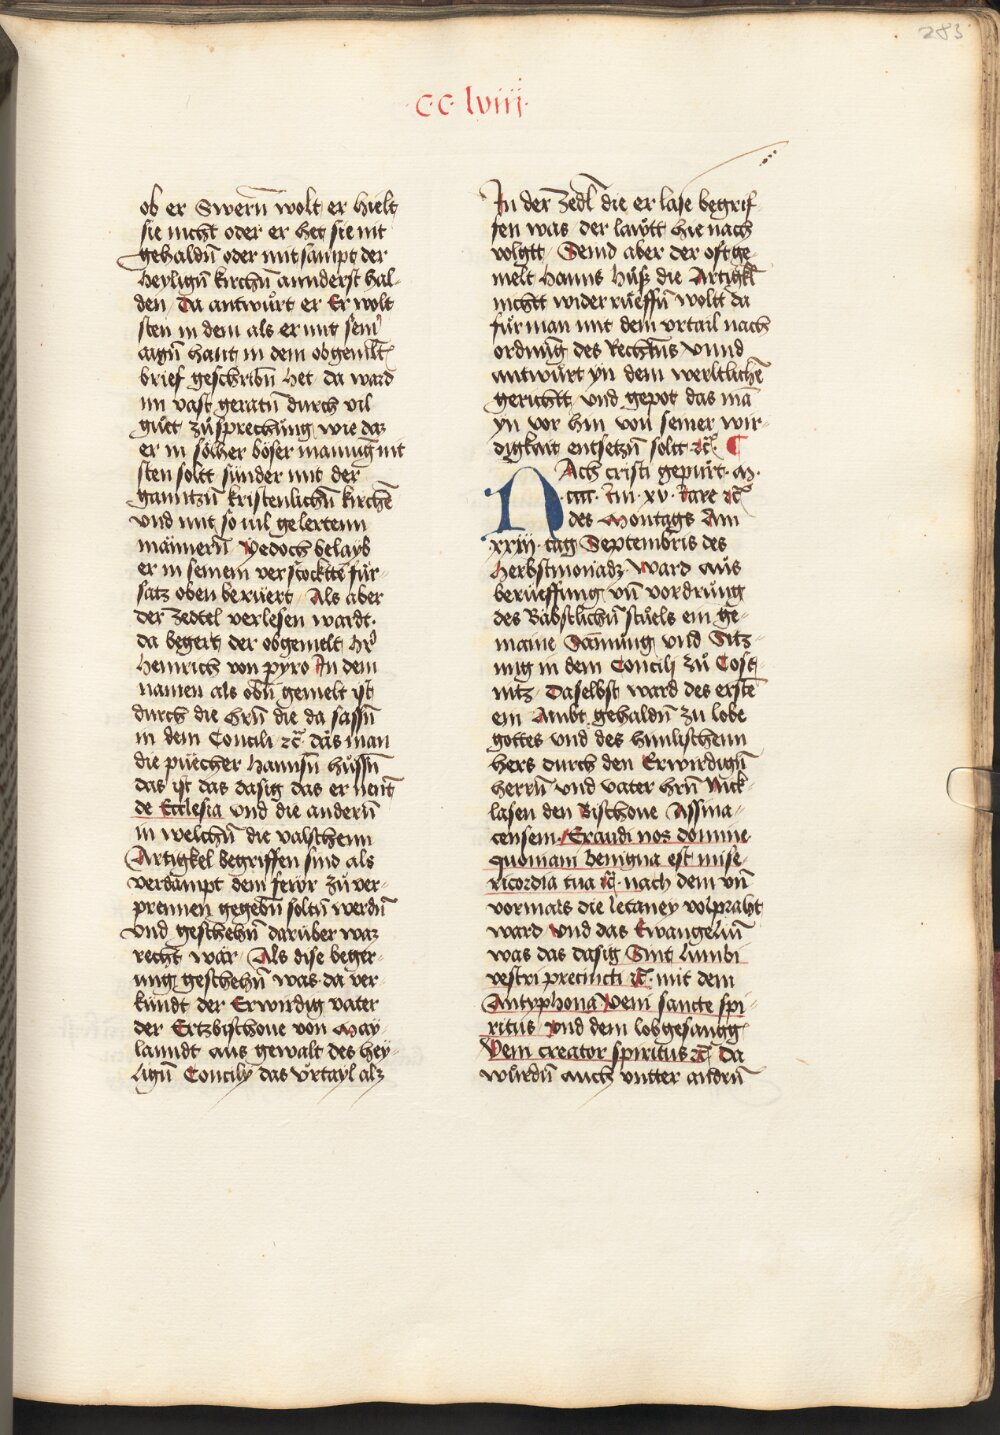 283
·c·c· lviij·
ob er Swern̄ wolt er hielt
sie nicht oder er het sie nit
gehaldn̄ oder mit sampt der
heylign̄ kirchn̄ annderst hal-
den / Da antwůrt er Er wolt
sten in dem als er mit sein᷑
aign̄ hant in dem obgemelt̄
brief geschribn̄ het da ward
im vast geratn̄ durch vil
gůet zůsprechung wie daz
er in sölher böser mainuḡ nit
sten soltt sunder mit der
ganntzn̄ kristenlichn̄ kirchē
vnd mit so uil gelertenn
männern̄ Yedoch belayb
er in seinem verstocktē für-
satz oben berüert / Als aber
der zedtel verlesen wardt·
da begert der obgemelt hr᷑
Heinrich von pyro In dem
namen als obn̄ gemelt ist
durch die hrn̄ die da sassn̄
in dem Concili ⁊c̄ das man
die püecher hannsn̄ hussn̄
das ist das dasig das er nent̄
de Ecclesia vnd die andern̄
in welchn̄ die valschenn
Artigkel begriffen sind als
verdampt dem fewr zů ver-
prennen gegebn̄ soltn̄ werdn̄
vnd geschehn̄ darüber waz
recht wär / Als dise beger-
ung geschehn̄ was da ver-
kundt der Erwirdig vater
der Ertzbischoue von May-
lanndt aus gewalt des hey-
lign̄ Concily das vrtayl alz
In der zedl̄ die er lase begrif-
fen was der lawtt hie nach
volgtt / Seind aber der oftge-
melt Hanns Huß die Artigkl̄
nichtt widerrüeffn̄ wolt da
fůr man mit dem vrtail nach
ordnūg des Rechtns vnnd
antwurt yn dem werltlichē
gerichtt vnd gepot das mā
yn vor hin von seiner wir-
digkait entsetzn̄ solt ⁊c̄
NAch cristi gepurt· M·
·cccc· vn̄· xv· Jare ⁊c̄
des Montags Am
xxiij· tag Septembris des
Herbstmonadz ward aus
berüeffung vn̄ vordrūng
des Bäbstlichn̄ stuels ein ge-
maine Samūng vnd Sitz-
ung in dem Concilj zů Cost-
nitz / Daselbst ward des erstē
ein Ambt gehaldn̄ zu lobe
gottes vnd des himlischenn
hers durch den Erwirdign̄
herrn̄ vnd vater hrn̄ Nick-
lasen den Bischoue Assina-
censem· Exaudi nos domine
quoniam benigna est mise-
ricordia tua ⁊c̄· nach dem vn̄
vormals die letaney volpraht
ward vnd das Ewangeliū
was das dasig Sint lumbi
vestri precincti ⁊c̄· mit dem
Antyphona Veni sancte spi-
ritus vnd dem lobgesangg
Veni creator spiritus ⁊c̄ Da
wurdn̄ auch vntter andrn̄